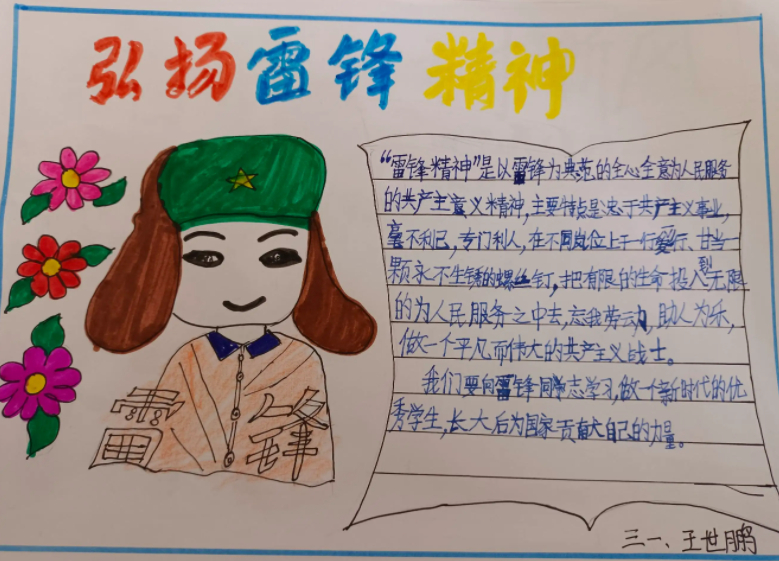 弘扬雷锋精神
“雷锋精神”是以雷锋为典范的全心全意为人民服务
的共产主意义精神,主要特点是忠于共产主义事业,
毫不利己,专门利人,在不同岗位上干一行爱一行、甘当一
颗永不生锈的螺丝钉,把有限的生命投入到无限
的为人民服务之中去,忘我劳动,助人为乐,
做一个平凡而伟大的共产主义战士。
我们要向雷锋同学志学习,做一个新时代的优
秀学生,长大后为国家贡献自己的力量。
雷锋
三一、王世鹏